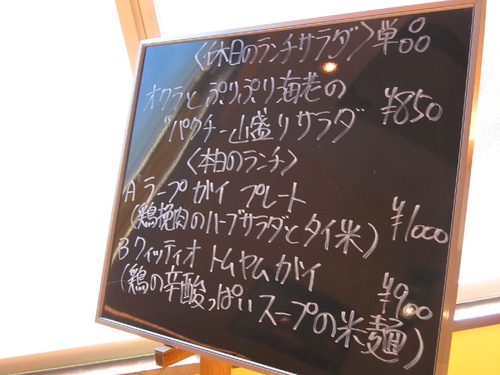 〈休日のランチサラダ〉単品
オクラとぷりぷり海老の ¥850
パクチー山盛りサラダ
〈本日のランチ〉
A ラープガイ プレート
(鶏挽肉のハーブサラダとタイ米) ¥1000
B クィッティオ トムヤムガイ
(鶏の辛酸っぱいスープの米麺) ¥900